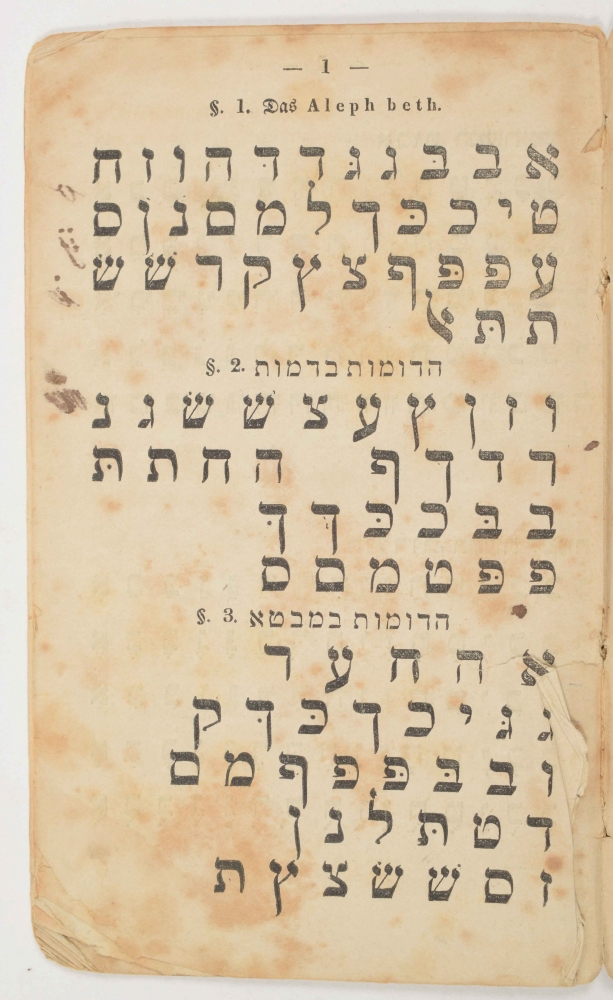 — 1 —
§. 1. Das Aleph beth.
א ב בּ ג גּ ד דּ ה ו ז ח
ט י כ כּ ך ל מ ם נ ן ס
ע פ פּ ף צ ץ ק ר שׁ שׂ
ת תּ ﭏ
§. 2. הדומות בדמות
ו ז ן ץ ע צ שׁ שׂ ג נ
ר ד ך ף ה ח ת תּ
ב בּ כ כּ ך ךּ
פ פּ ט מ ם ס
§. 3. הדומות במבטא
א ה ח ע ר
ג גּ י כ ך כּ ךּ ק
ו ב בּ פּ פ ף מ ם
ד ט תּ ל נ ן
ז ס שׁ שׂ צ ץ ת